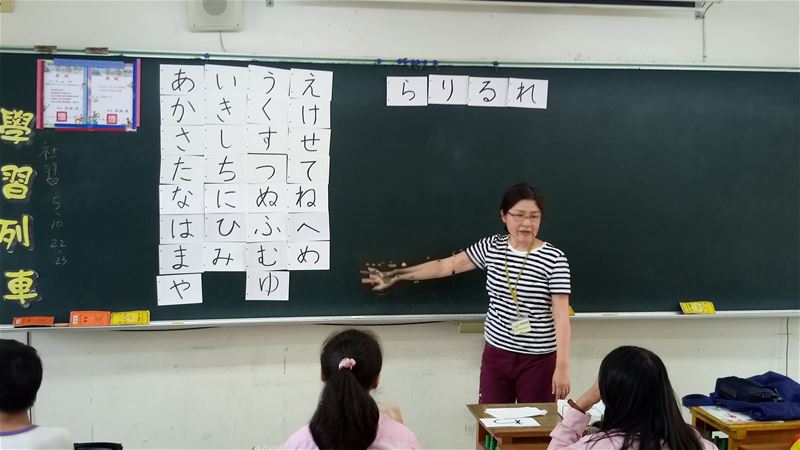 あ い う え
か き く け
さ し す せ
た ち つ て
な に ぬ ね
は ひ ふ へ
ま み む め
や ゆ
ら り る れ
學習列車
社習
5.
10.
22.
23